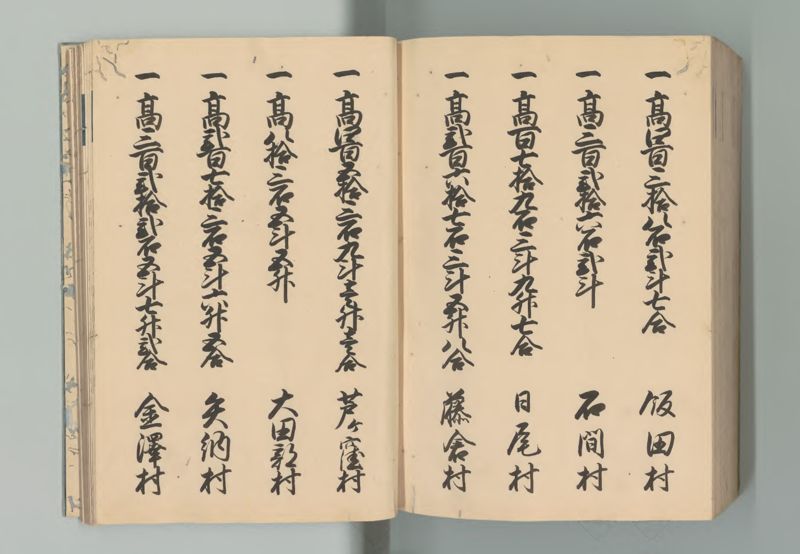 一 高四百三拾八石弐斗七合 飯田村
一 高三百弐拾六石弐斗 石間村
一 高百七拾九石三斗九升七合 日尾村
一 高弐百六拾七石三斗五升八合 藤倉村
一 高四百五拾三石九斗壱升壱合 芦ヶ窪村
一 高八拾三石五斗五升 大田部村
一 高弐百七拾三石五斗六升五合 矢納村
一 高三百弐拾弐石五斗七升弐合 金澤村